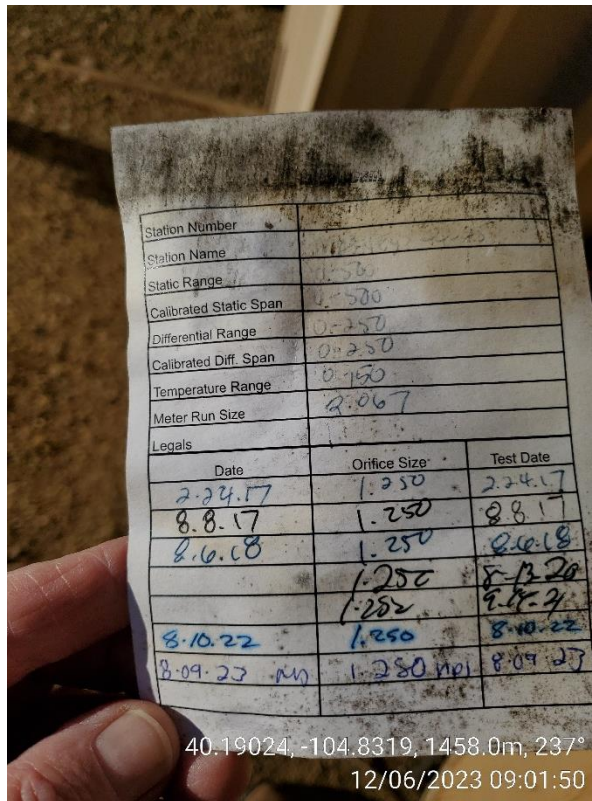 Station Number
Station Name
Static Range 0-500
Calibrated Static Span 0-500
Differential Range 0-250
Calibrated Diff. Span 0-250
Temperature Range 0-150
Meter Run Size 2.067
Legals
Date Orifice Size Test Date
2.24.17 1.250 2.24.17
8.8.17 1.250 8.8.17
8.6.18 1.250 8.6.18
1.250 8-13-20
8.10.22 1.250 8.10.22
8.09.23 1.250 8.09.23
40.19024, -104.8319, 1458.0m, 237°
12/06/2023 09:01:50